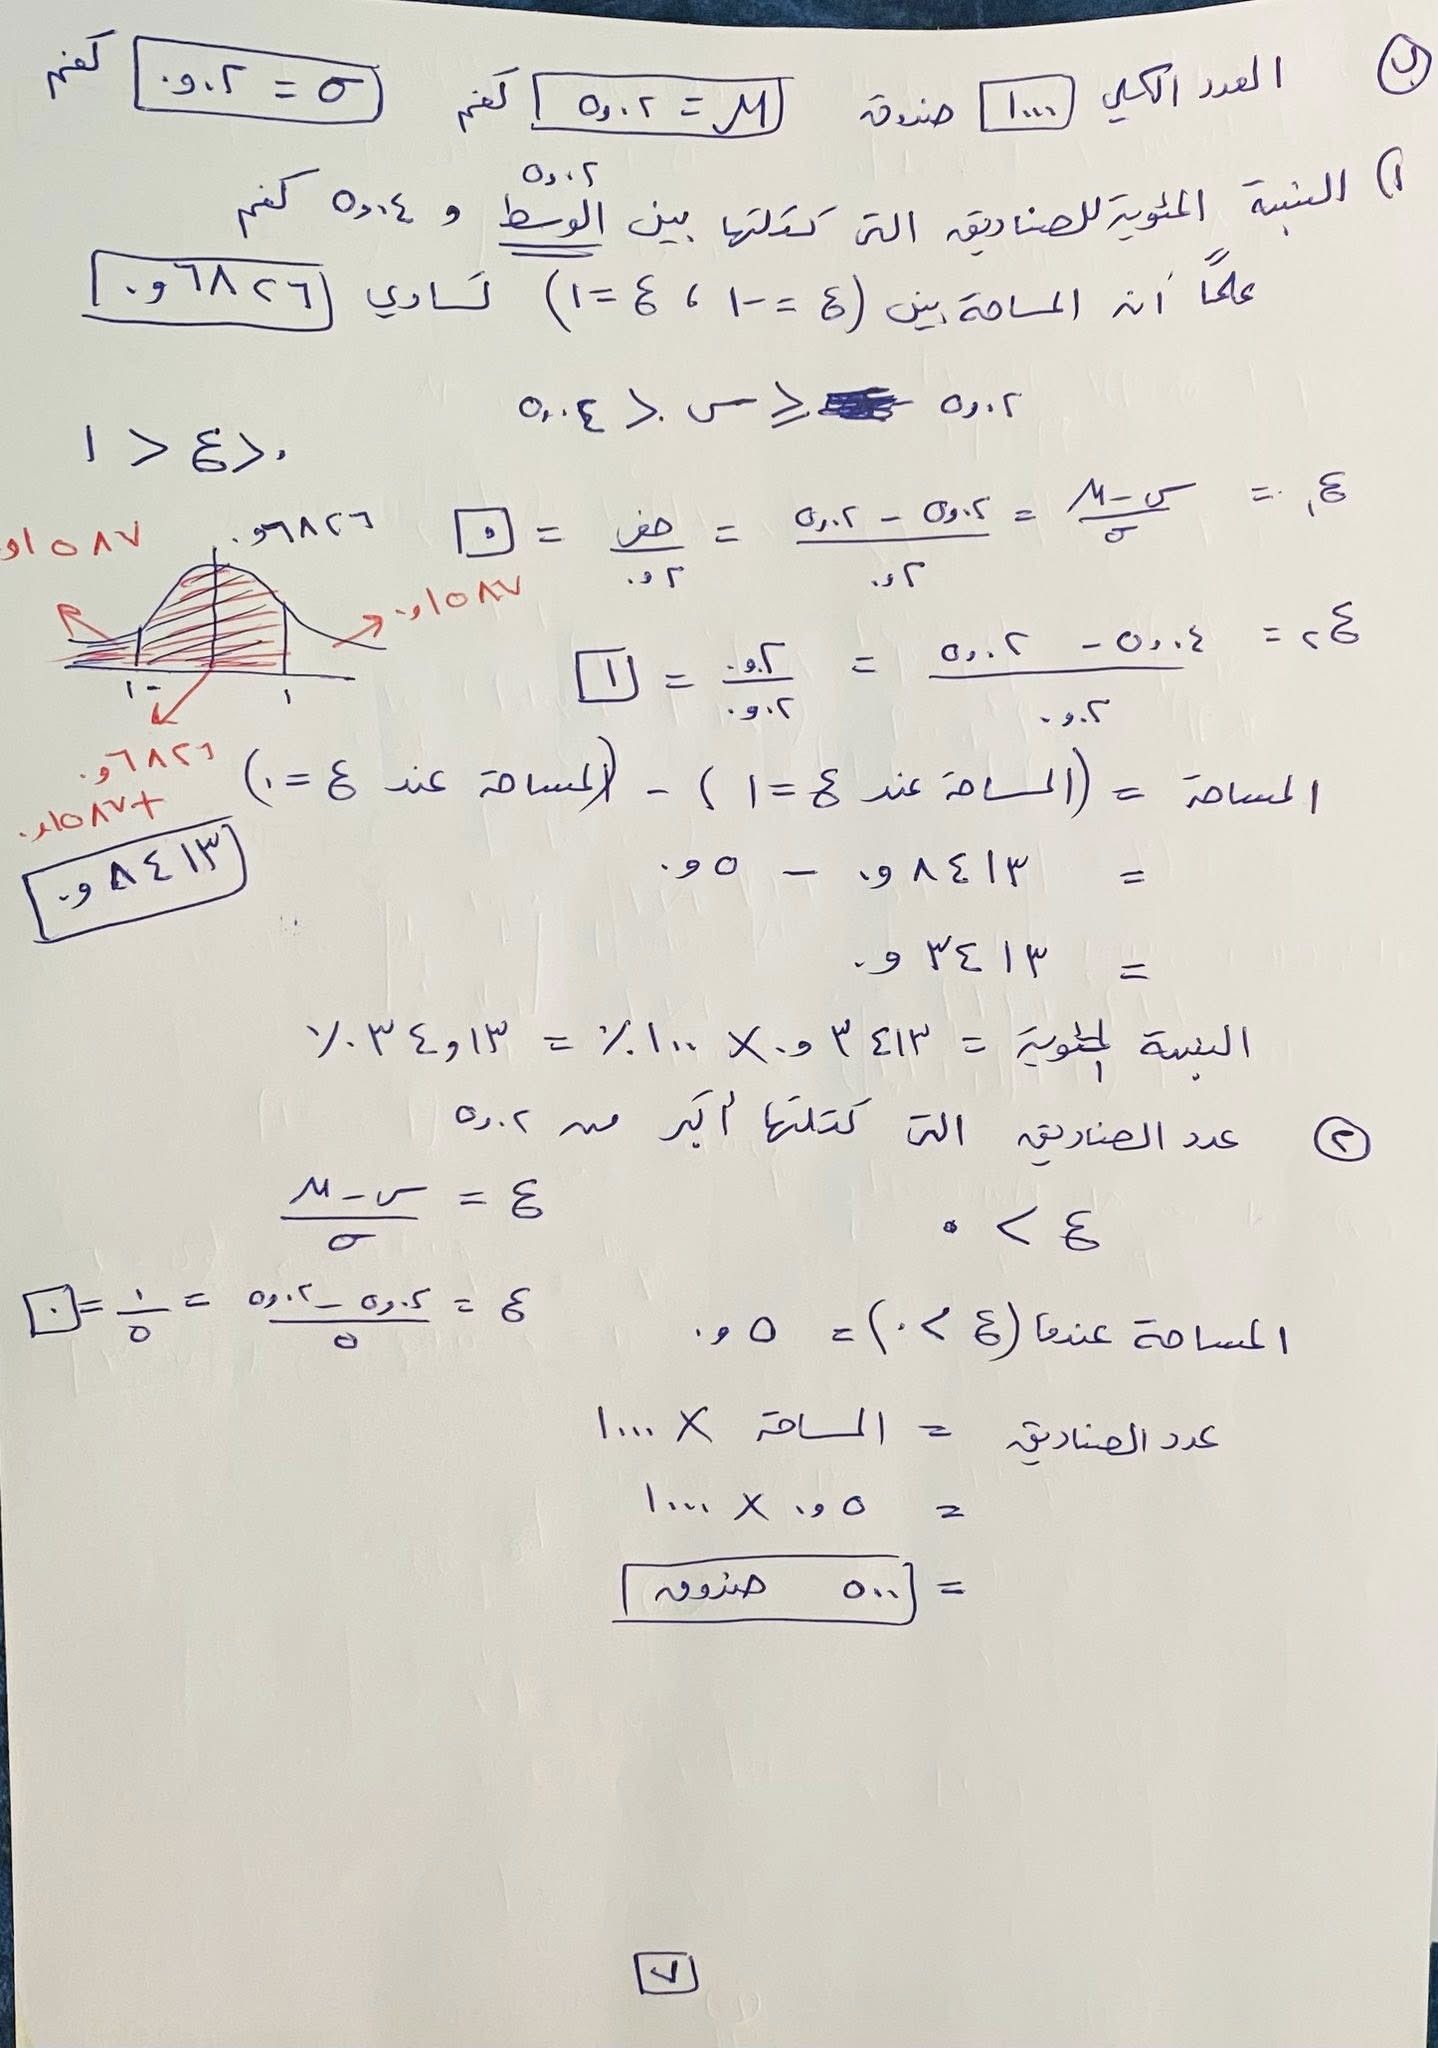 ب) العدد الكلي ١٠٠٠ صندوق μ = ٥,٠٢ كغم σ = ٠,٠٢ كغم
١) النسبة المئوية للصناديق التي كتلتها بين الوسط و ٥,٠٤ كغم
٥,٠٢
علمًا أن المساحة بين (ع = -١ ، ع = ١) تساوي ٠,٦٨٢٦
٥,٠٢ ≤ س < ٥,٠٤
٠ < ع < ١
ع١ = س - μ / σ = ٥,٠٢ - ٥,٠٢ / ٠,٠٢ = صفر / ٠,٠٢ = ٠
ع٢ = ٥,٠٤ - ٥,٠٢ / ٠,٠٢ = ٠,٠٢ / ٠,٠٢ = ١
٠,٦٨٢٦
٠,١٥٨٧
٠,١٥٨٧
-١
١
٠,٦٨٢٦
+ ٠,١٥٨٧
٠,٨٤١٣
المساحة = (المساحة عند ع = ١) - (المساحة عند ع = ٠)
= ٠,٨٤١٣ - ٠,٥
= ٠,٣٤١٣
النسبة المئوية = ٠,٣٤١٣ × ١٠٠٪ = ٣٤,١٣٪
٢) عدد الصناديق التي كتلتها أكبر من ٥,٠٢
ع > ٠
ع = س - μ / σ
ع = ٥,٠٢ - ٥,٠٢ / ٥ = ٠ / ٥ = ٠
المساحة عندما (ع > ٠) = ٠,٥
عدد الصناديق = المساحة × ١٠٠٠
= ٠,٥ × ١٠٠٠
= ٥٠٠ صندوق
٧